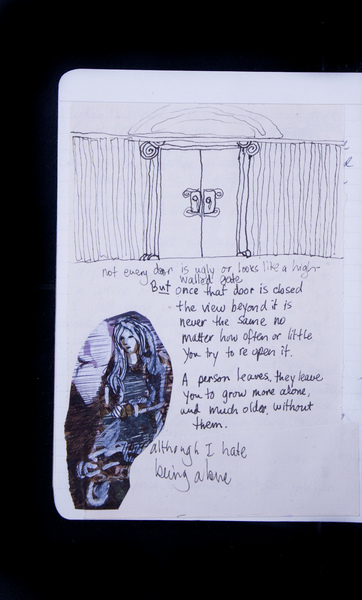 not every door is ugly or looks like a high-
walled gate
But once that door is closed
the view beyond it is
never the same no
matter how often or little
you try to re open it.
A person leaves, they leave
you to grow more alone,
and much older, without
them.
although I hate
being alone